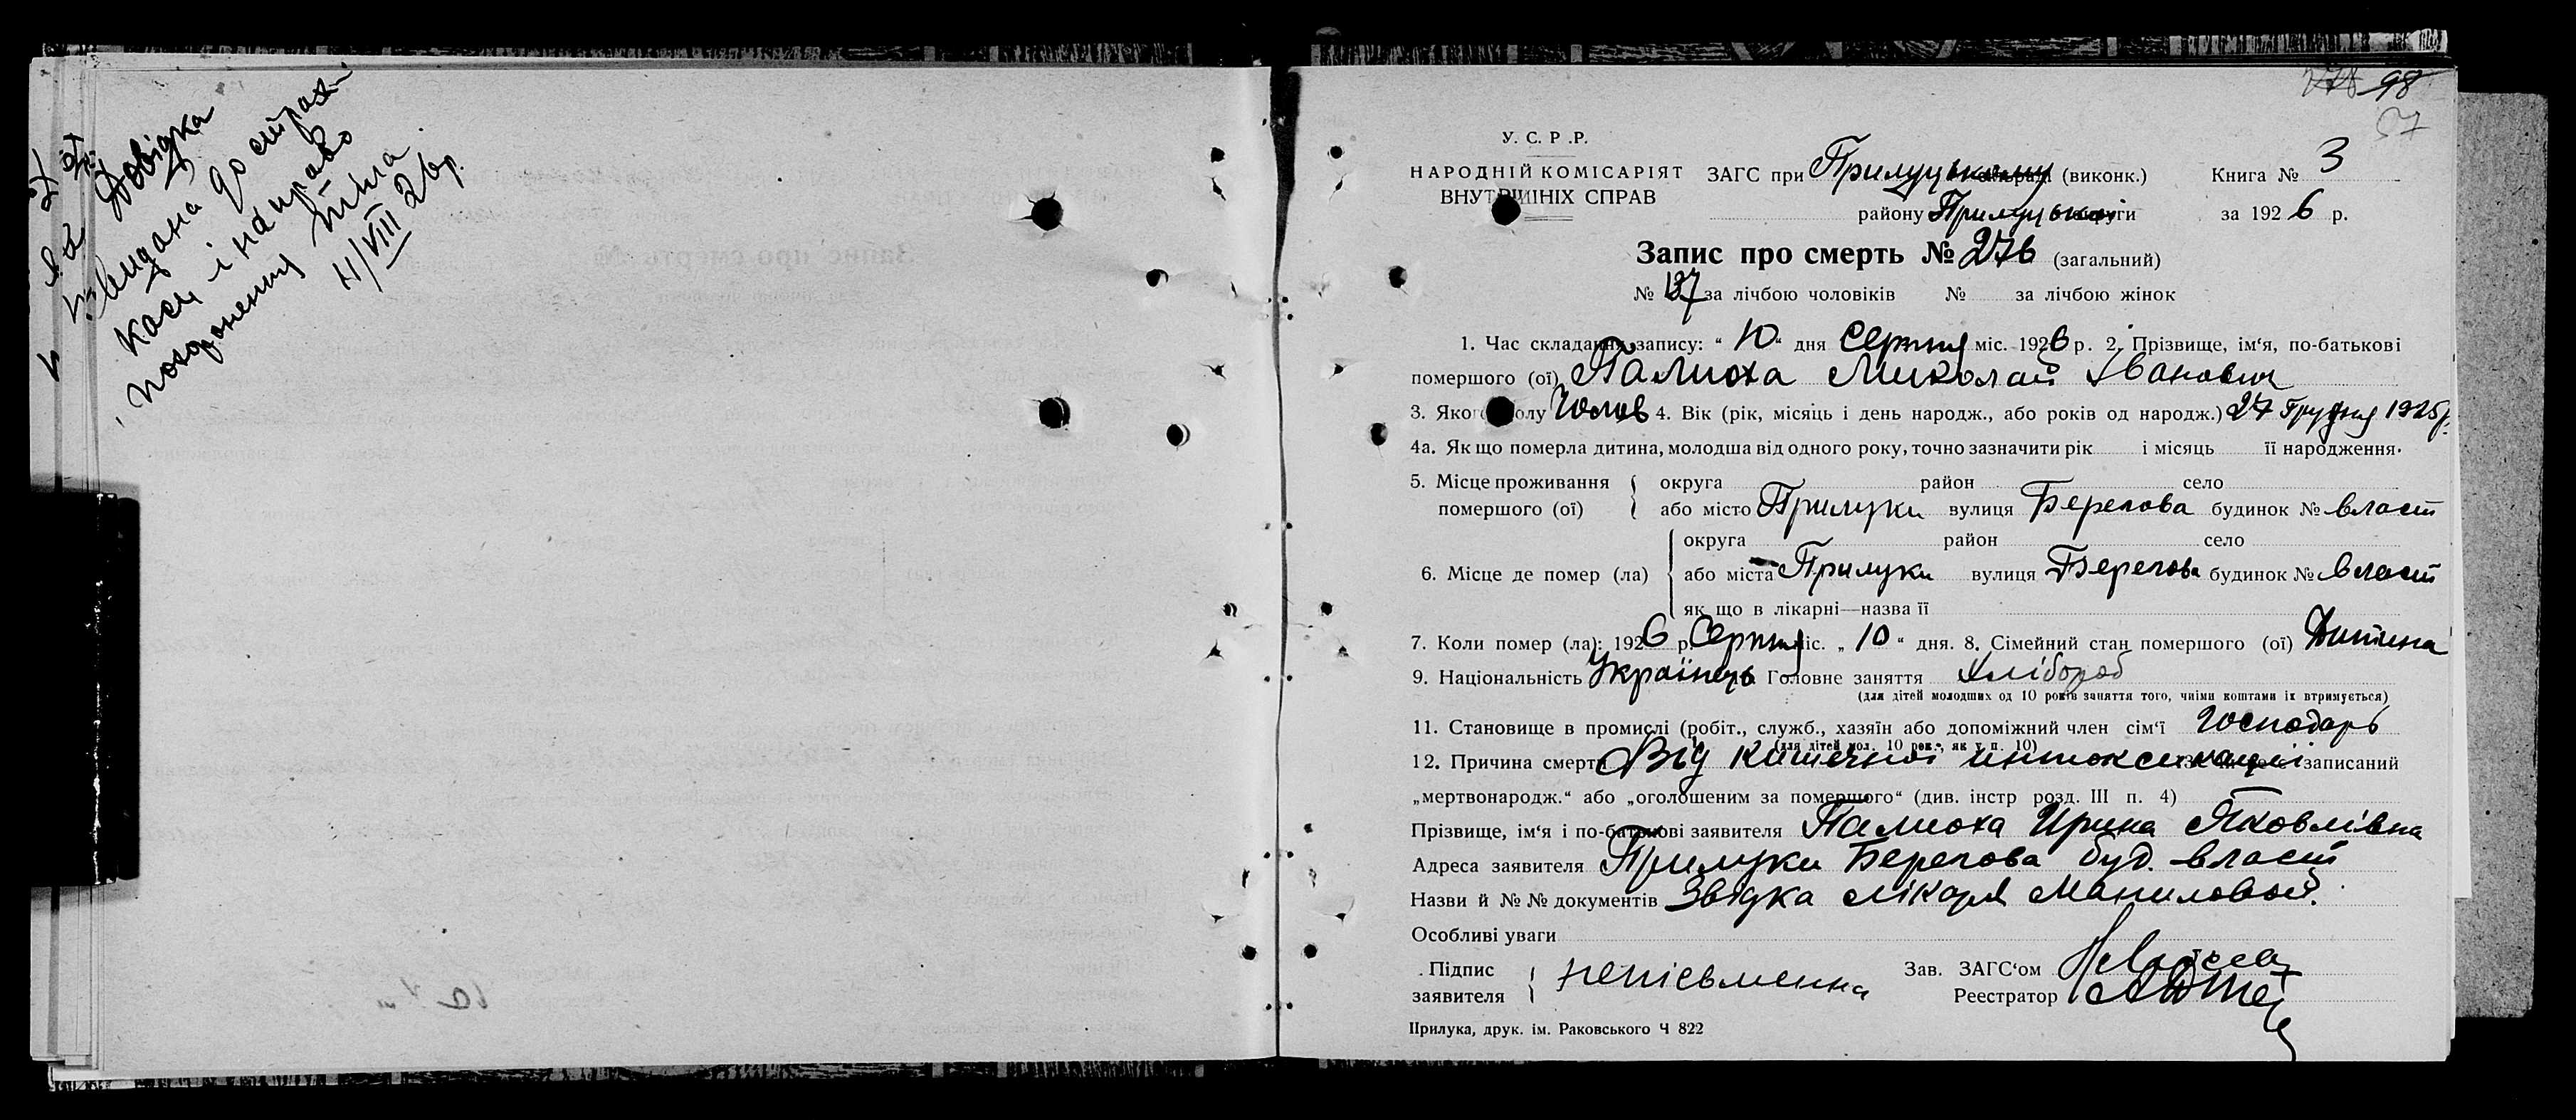 Довідка
видана до страх
каси і на право
похоронення тіла
11/VIII 26р.
98
57
У. С. Р .Р.
НАРОДНІЙ КОМІСАРІЯТ
ВНУТРІШНІХ СПРАВ
ЗАГС при Прилуцькому (виконк.) Книга № 3
району Прилуцької округи за 1926 р.
Запис про смерть № 276 (загальний)
№ 137 за лічбою чоловіків № за лічбою жінок
1. Час складання запису: " 10 " дня Серпня міс. 1926 р. 2. Прізвище, ім'я, по-батькові
помершого (ої) Палюха Миколай Іванович
3. Якого полу Чолов 4. Вік (рік, місяць і день народж., або років од народж.) 27 Грудня 1925р.
4а. Як що померла дитина, молодша від одного року, точно зазначити рік і місяць її народження.
5. Місце проживання помершого (ої) { округа район село
або місто Прилуки вулиця Берегова будинок № власн
6. Місце де помер (ла) { округа район село
або міста Прилуки вулиця Берегова будинок № власн
як що в лікарні—назва її
7. Коли помер (ла): 1926 р. Серпня міс. „ 10 " дня. 8. Сімейний стан помершого (ої) Дитина
9. Національність Українець Головне заняття Хлібороб
(для дітей молодших од 10 років заняття того, чиїми коштами їх втримується)
11. Становище в промислі (робіт., служб., хазяїн або допоміжний член сім'ї Господарь
(для дітей мол. 10 рок., як у п. 10)
12. Причина смерти Від кишечної интоксикації записаний
„мертвонародж." або „оголошеним за помершого" (див. інстр розд. III п. 4)
Прізвище, ім'я і по-батькові заявителя Палюха Ирина Яковлівна
Адреса заявителя Прилуки Берегова буд. власн
Назви й №№ документів Звідка лікаря Маниловой.
Особливі уваги
Підпис заявителя { неписьменна
Зав. ЗАГС'ом
Реєстратор
Прилука, друк. ім. Раковського Ч 822